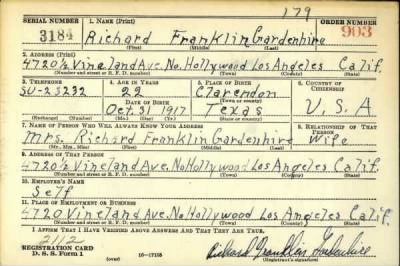 179
SERIAL NUMBER 1. NAME (Print) ORDER NUMBER
3184 Richard Franklin Gardenhire 903
(First) (Middle) (Last)
2. ADDRESS (Print)
4720½ Vineland Ave. No. Hollywood Los Angeles Calif.
(Number and street or R. F. D. number) (Town) (County) (State)
3. TELEPHONE 4. AGE IN YEARS 5. PLACE OF BIRTH 6. COUNTRY OF CITIZENSHIP
SU-23232 22 Clarendon
DATE OF BIRTH (Town or county)
Oct. 31 1917 Texas U.S.A
(Exchange) (Number) (Mo.) (Day) (Yr.) (State or country)
7. NAME OF PERSON WHO WILL ALWAYS KNOW YOUR ADDRESS 8. RELATIONSHIP OF THAT PERSON
Mrs. Richard Franklin Gardenhire Wife
(Mr., Mrs., Miss) (First) (Middle) (Last)
9. ADDRESS OF THAT PERSON
4720½ Vineland Ave. No Hollywood Los Angeles Calif.
(Number and street or R. F. D. number) (Town) (County) (State)
10. EMPLOYER'S NAME
Self
11. PLACE OF EMPLOYMENT OR BUSINESS
4720 Vineland Ave. No Hollywood Los Angeles Calif.
(Number and street or R. F. D. number) (Town) (County) (State)
I AFFIRM THAT I HAVE VERIFIED ABOVE ANSWERS AND THAT THEY ARE TRUE.
2112
REGISTRATION CARD
D. S. S. Form 1 (over) 16-17105 Richard Franklin Gardenhire
(Registrant's signature)